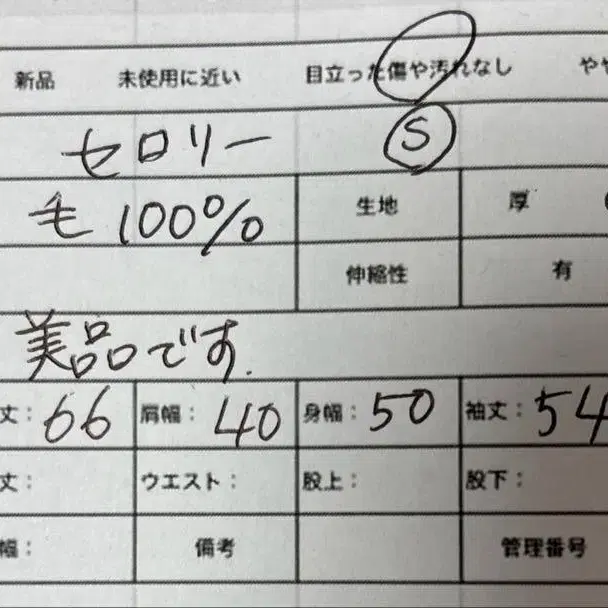 新品 未使用に近い 目立った傷や汚れなし やや
セロリー S
毛 100% 生地 厚
伸縮性 有
美品です.
丈: 66 肩幅: 40 身幅: 50 袖丈: 54
丈: ウエスト: 股上: 股下:
幅: 備考 管理番号